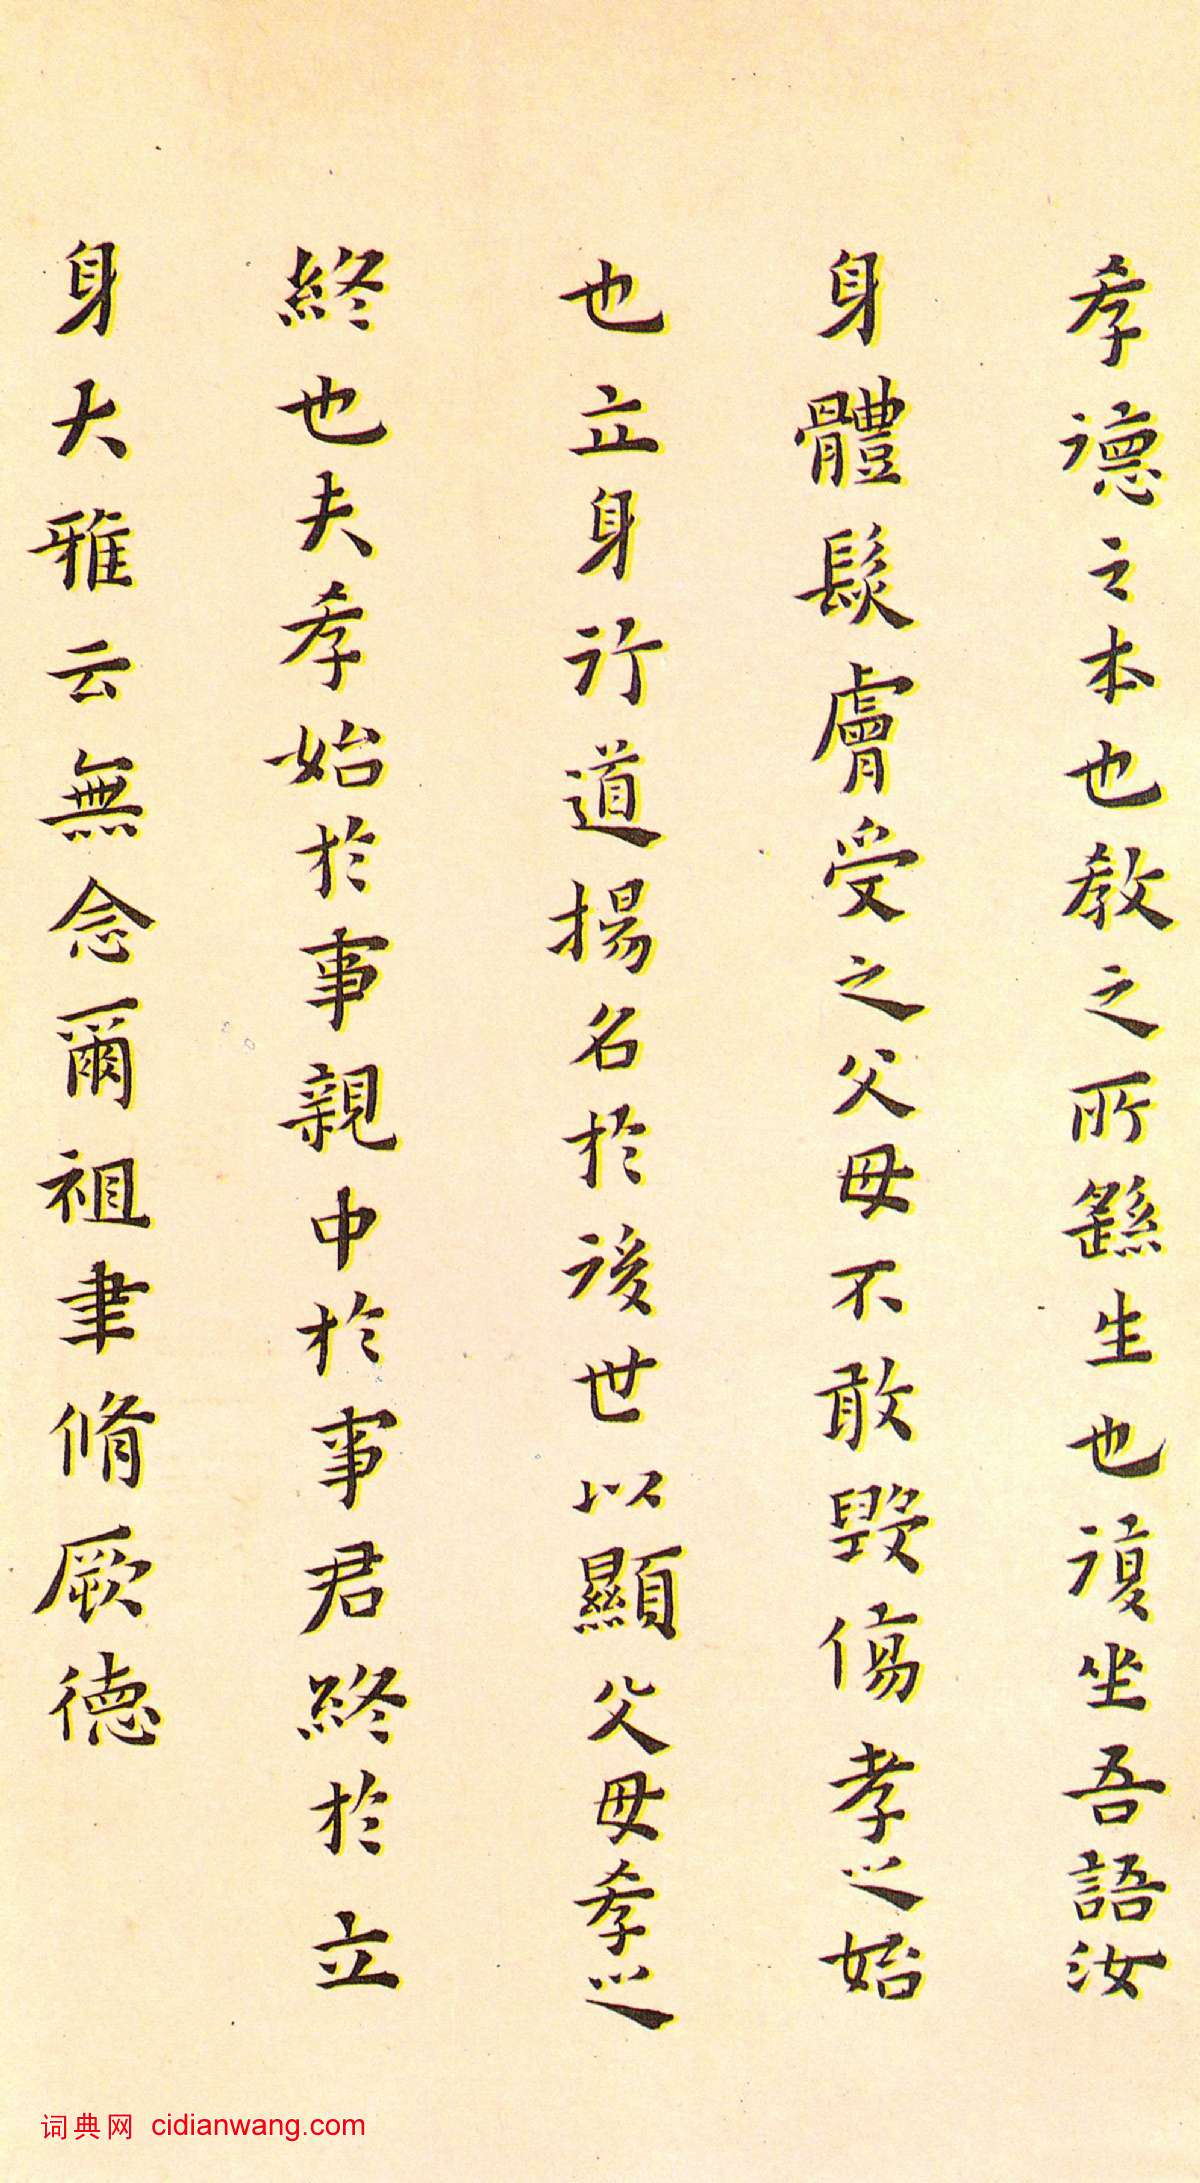 孝德之本也教之所繇生也復坐吾語汝
身體髮膚受之父母不敢毀傷孝之始
也立身行道揚名於後世以顯父母孝之
終也夫孝始於事親中於事君終於立
身大雅云無念爾祖聿脩厥德
词典网 cidianwang.com